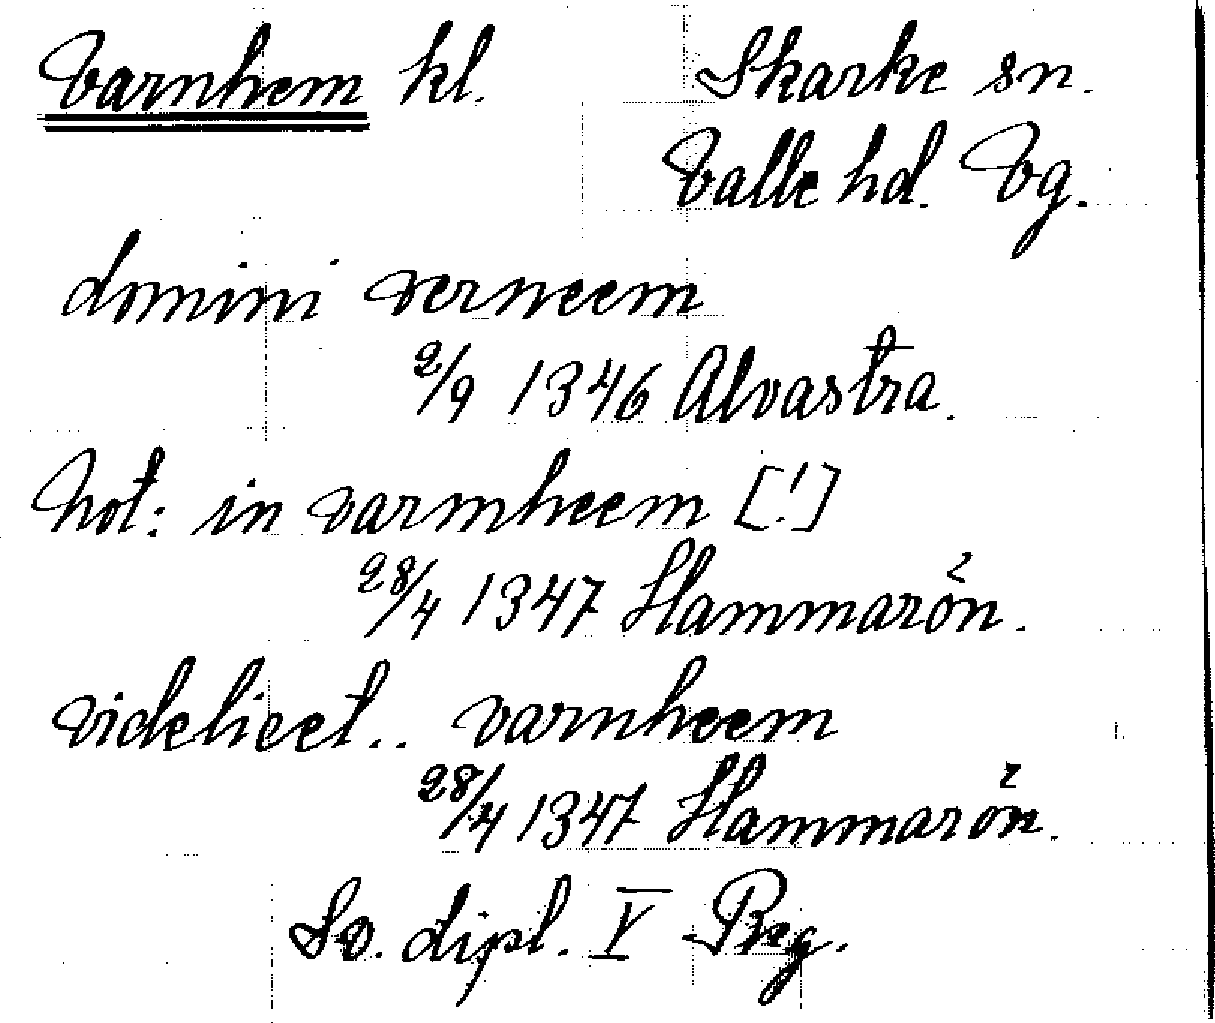 Varnhem kl. Skarke sn.
Valle hd. Vg.
domini verneem
2/9 1346 Alvastra.
not: in varmheem [!]
28/4 1347 Hammarön.
videlicet.. varnheem
28/4 1347 Hammarön.
Sv. dipl. V Reg.